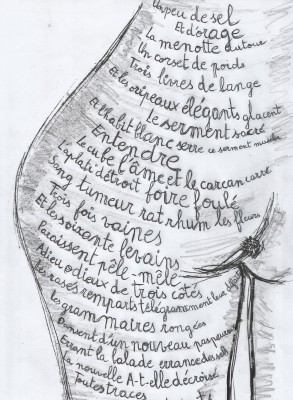 Un peu de sel
Et d'orage
La menotte autour
Un corset de poids
Trois livres de lange
Et les oripeaux élégants glacent
Le serment sacré
Et l'habit blanc serre ce serment
Entendre
Le cube l'âme et le carcan carré
L'aplati détroit foire foulé
Sang tumeur rat rhum les fleurs
Trois fois vaines
Et les soixante levains
Paraissent pêle-mêle
Adieu odieux de trois côtés
Les rases remparts télégrammement leur
Les grammatres rongées
d'un nouveau
Errant la balade errance des
La nouvelle A-t-elle décroisé
Toutes traces